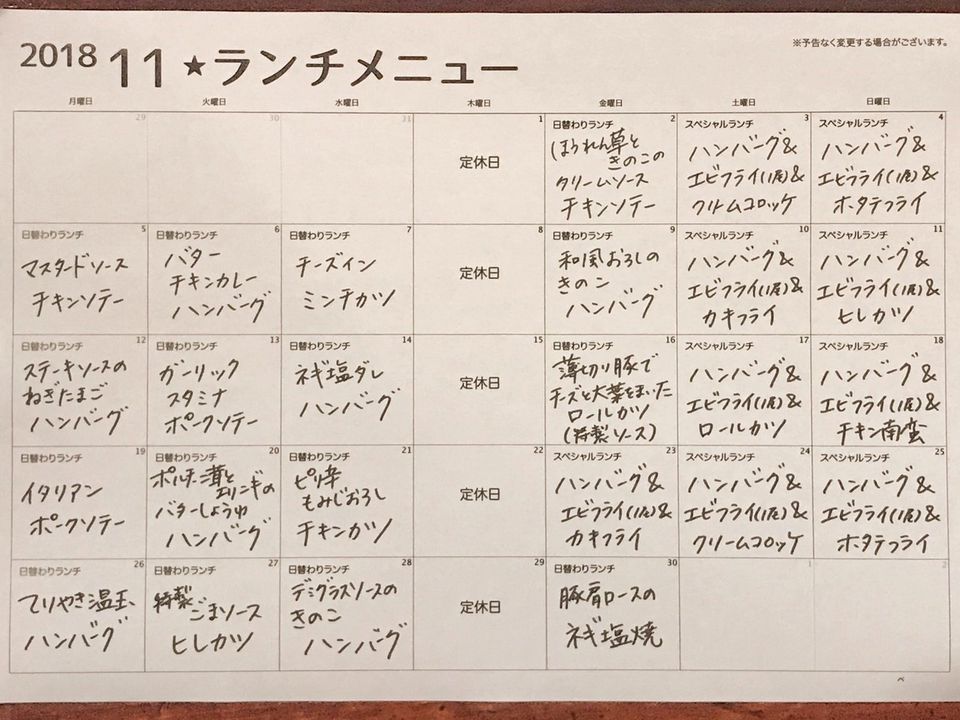 ※予告なく変更する場合がございます。
2018 11 ★ランチメニュー
月曜日 火曜日 水曜日 木曜日 金曜日 土曜日 日曜日
29
30
31
1
定休日
2
日替わりランチ
ほうれん草と
きのこの
クリームソース
チキンソテー
3
スペシャルランチ
ハンバーグ&
エビフライ(1尾)&
クリームコロッケ
4
スペシャルランチ
ハンバーグ&
エビフライ(1尾)&
ホタテフライ
5
日替わりランチ
マスタードソース
チキンソテー
6
日替わりランチ
バター
チキンカレー
ハンバーグ
7
日替わりランチ
チーズイン
ミンチカツ
8
定休日
9
日替わりランチ
和風おろしの
きのこ
ハンバーグ
10
スペシャルランチ
ハンバーグ&
エビフライ(1尾)&
カキフライ
11
スペシャルランチ
ハンバーグ&
エビフライ(1尾)&
ヒレカツ
12
日替わりランチ
ステーキソースの
ねぎたまご
ハンバーグ
13
日替わりランチ
ガーリック
スタミナ
ポークソテー
14
日替わりランチ
ネギ塩ダレ
ハンバーグ
15
定休日
16
日替わりランチ
薄切り豚で
チーズと大葉をまいた
ロールカツ
(特製ソース)
17
スペシャルランチ
ハンバーグ&
エビフライ(1尾)&
ロールカツ
18
スペシャルランチ
ハンバーグ&
エビフライ(1尾)&
チキン南蛮
19
日替わりランチ
イタリアン
ポークソテー
20
日替わりランチ
エリンギの
バターしょうゆ
ハンバーグ
21
日替わりランチ
ピリ辛
もみじおろし
チキンカツ
22
定休日
23
スペシャルランチ
ハンバーグ&
エビフライ(1尾)&
カキフライ
24
スペシャルランチ
ハンバーグ&
エビフライ(1尾)&
クリームコロッケ
25
スペシャルランチ
ハンバーグ&
エビフライ(1尾)&
ホタテフライ
26
日替わりランチ
てりやき温玉
ハンバーグ
27
日替わりランチ
特製
ごまソース
ヒレカツ
28
日替わりランチ
デミグラスソースの
きのこ
ハンバーグ
29
定休日
30
日替わりランチ
豚肩ロースの
ネギ塩焼
1
2